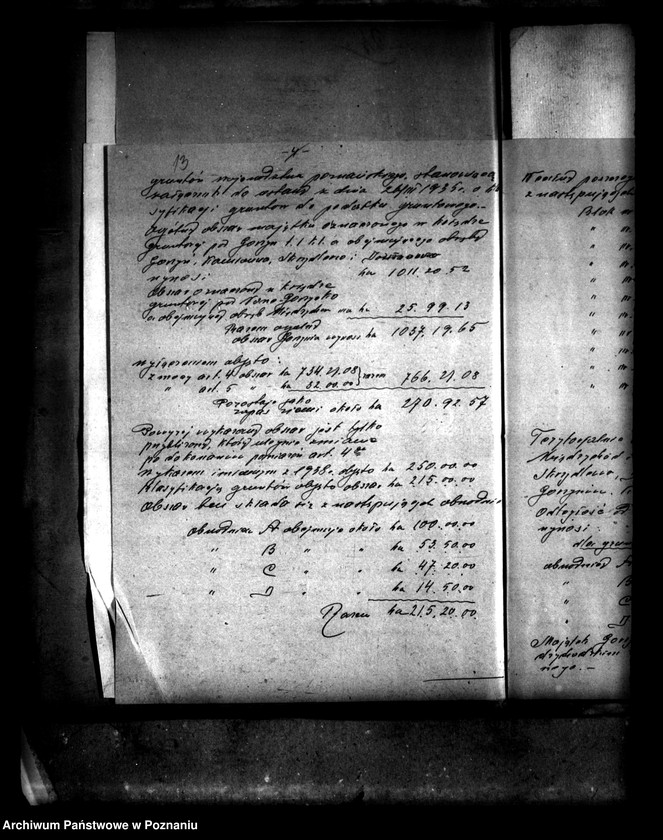 13
-7-
gruntów województwa poznańskiego, stanowiącą
załącznik do ustawy z dnia 1935r. o
syfikacji gruntów do podatku gruntowego.-
Ogólny obszar majątku oznaczonego w księdze
gruntowej pod Gorzyń t.I k.1. a obejmującego obręby
Gorzyń, Kamionna, Skrzydlewo i
wynosi ha 1011.20.52
Obszar oznaczony w księdze
gruntowej pod
a obejmujący obręb Międzychód ma ha 25.99.13
Razem ogólny
obszar Gorzynia wynosi ha 1037.19.65
wyłączeniem objęto:
z mocy art. 4 obszar ha 734.21.08
" art. 5 " ha 32.00.00 } razem 766.21.08
Pozostaje jako
zapas ziemi około ha 270.92.57
Powyżej wykazany obszar jest tylko
przybliżony, który ulegnie zmianie
po dokonaniu pomiarów art. 4
Wykazem imiennym z 1938. objęto ha 250.00.00
Klasyfikacją gruntów objęto obszar ha 215.00.00
Obszar ten składa się z następujących obwodnic
obwodnica A obejmuje około ha 100.00.00
" B " " ha 53.50.00
" C " " ha 47.20.00
" D " " ha 14.50.00
Razem ha 215.20.00
z następujących
Blok
"
"
"
"
"
"
"
"
Terytorjalnie
Międzychód
Skrzydlewo
Gorzyniu.
Odległość
wynosi:
dla
obwodnica A
" B
" C
" D
Majątek Gorzyń
Archiwum Państwowe w Poznaniu